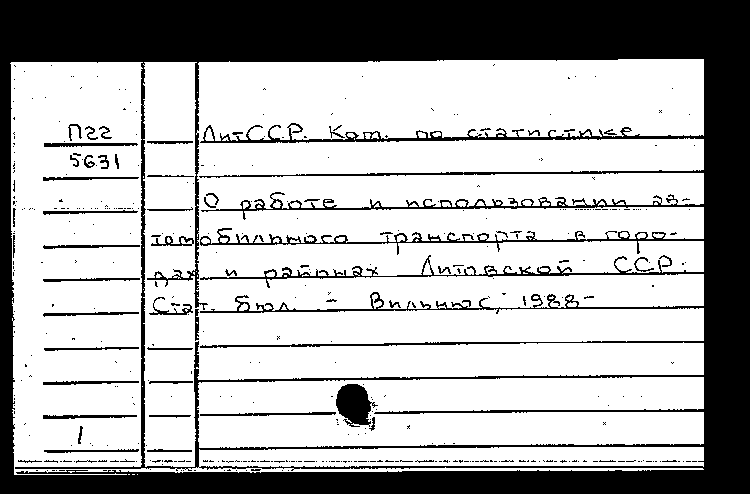 П22 ЛитССР. Ком. по статистике
5631
О работе и использовании ав-
томобильного транспорта в горо-
дах и районах Литовской ССР:
Стат. бюл. - Вильнюс, 1988-
1